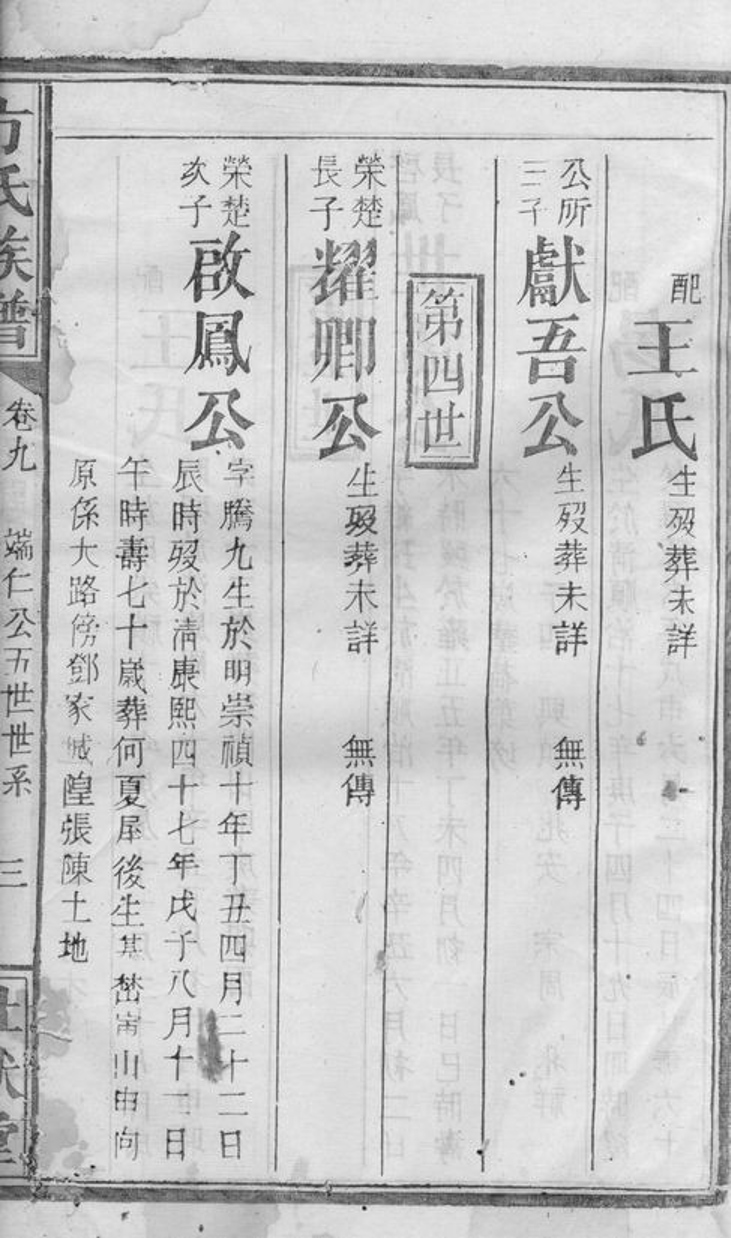 配
王氏
生歿葬未詳
公所
三子
獻吾公
生歿葬未詳 無傳
第四世
榮楚
長子
耀卿公
生歿葬未詳 無傳
榮楚
次子
啟鳳公
字騰九生於明崇禎十年丁丑四月二十二日
辰時歿於清康熙四十七年戊子八月十一日
午時壽七十歲葬何夏屋後生基塋甯山申向
原係大路傍鄧家城隍張陳土地
方氏族譜
卷九 端仁公五世世系 三